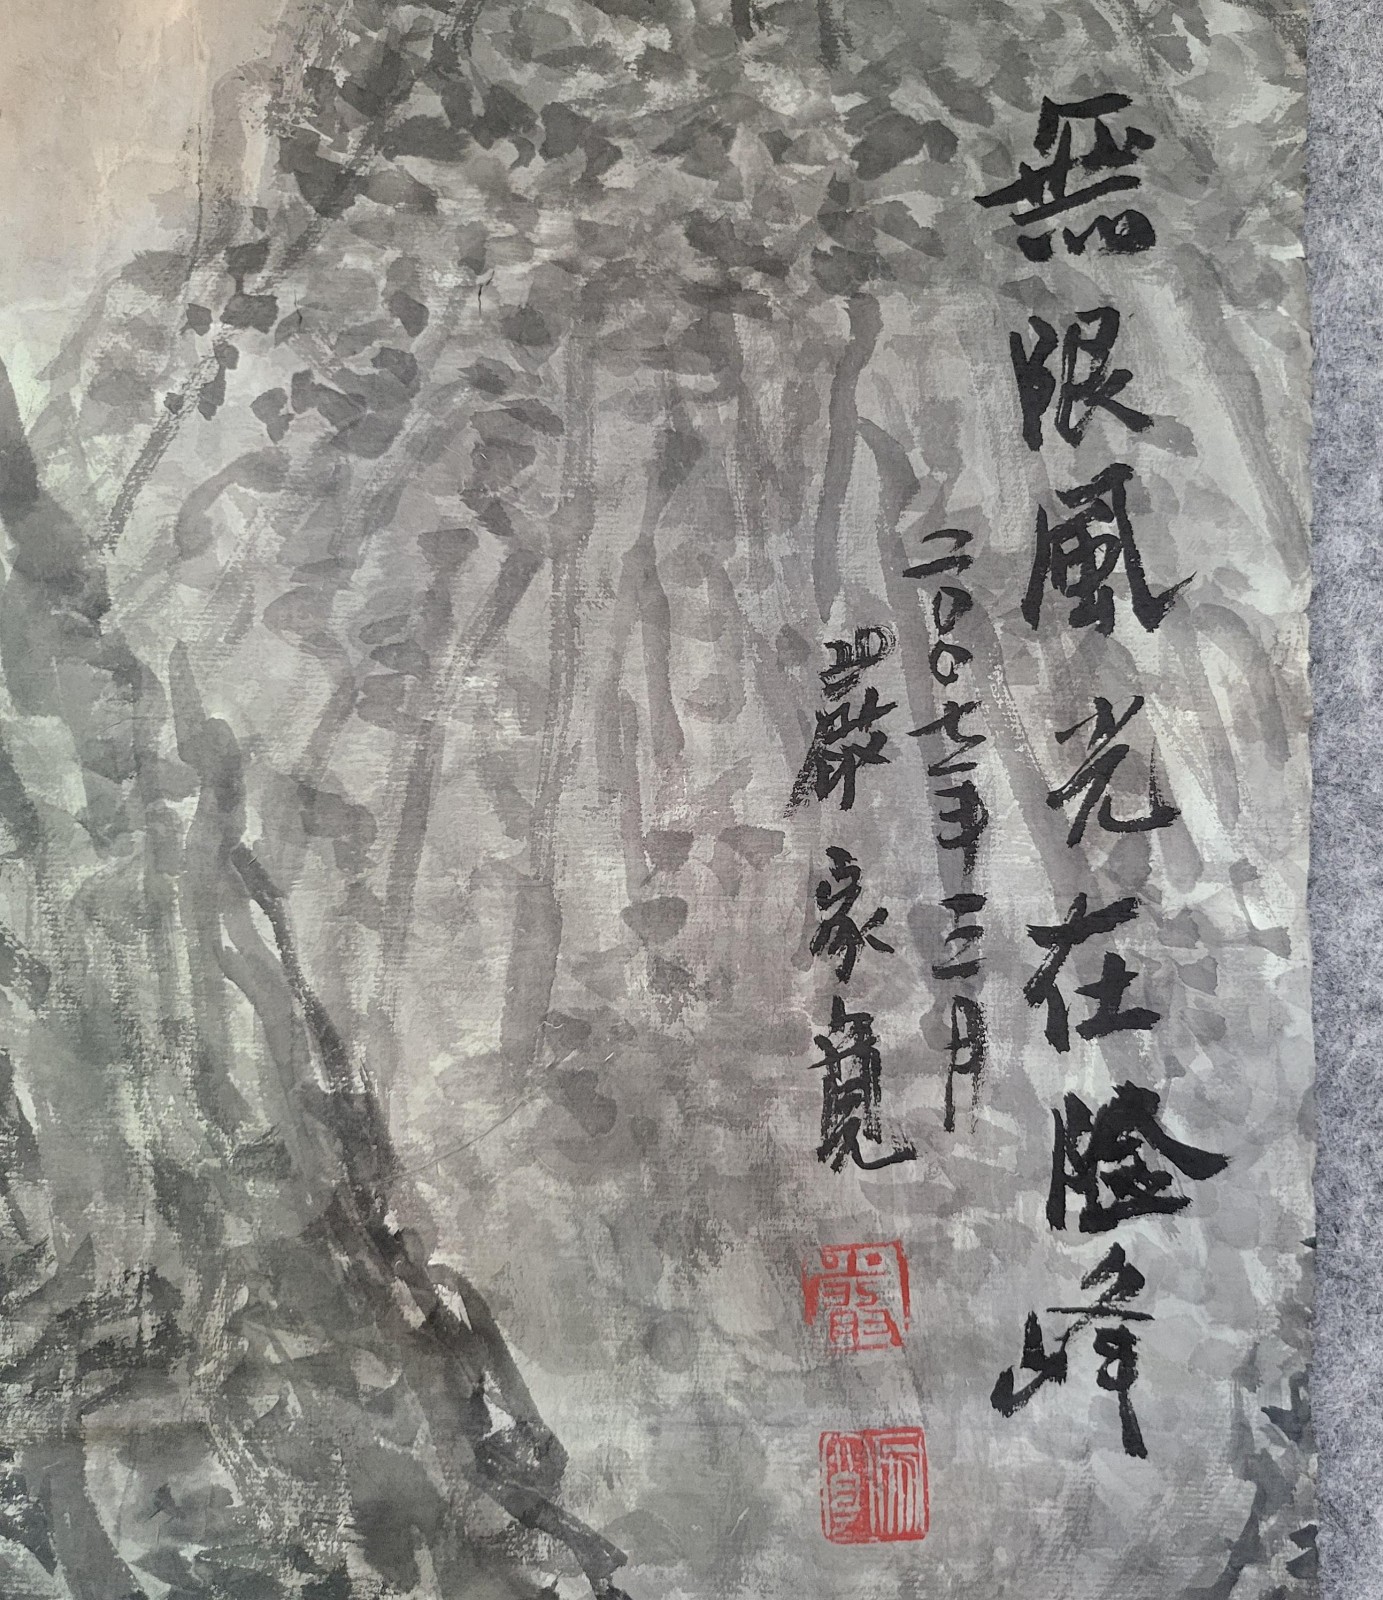 無限風光在險峰
二〇〇七年三月
嚴家寬
嚴
家寬